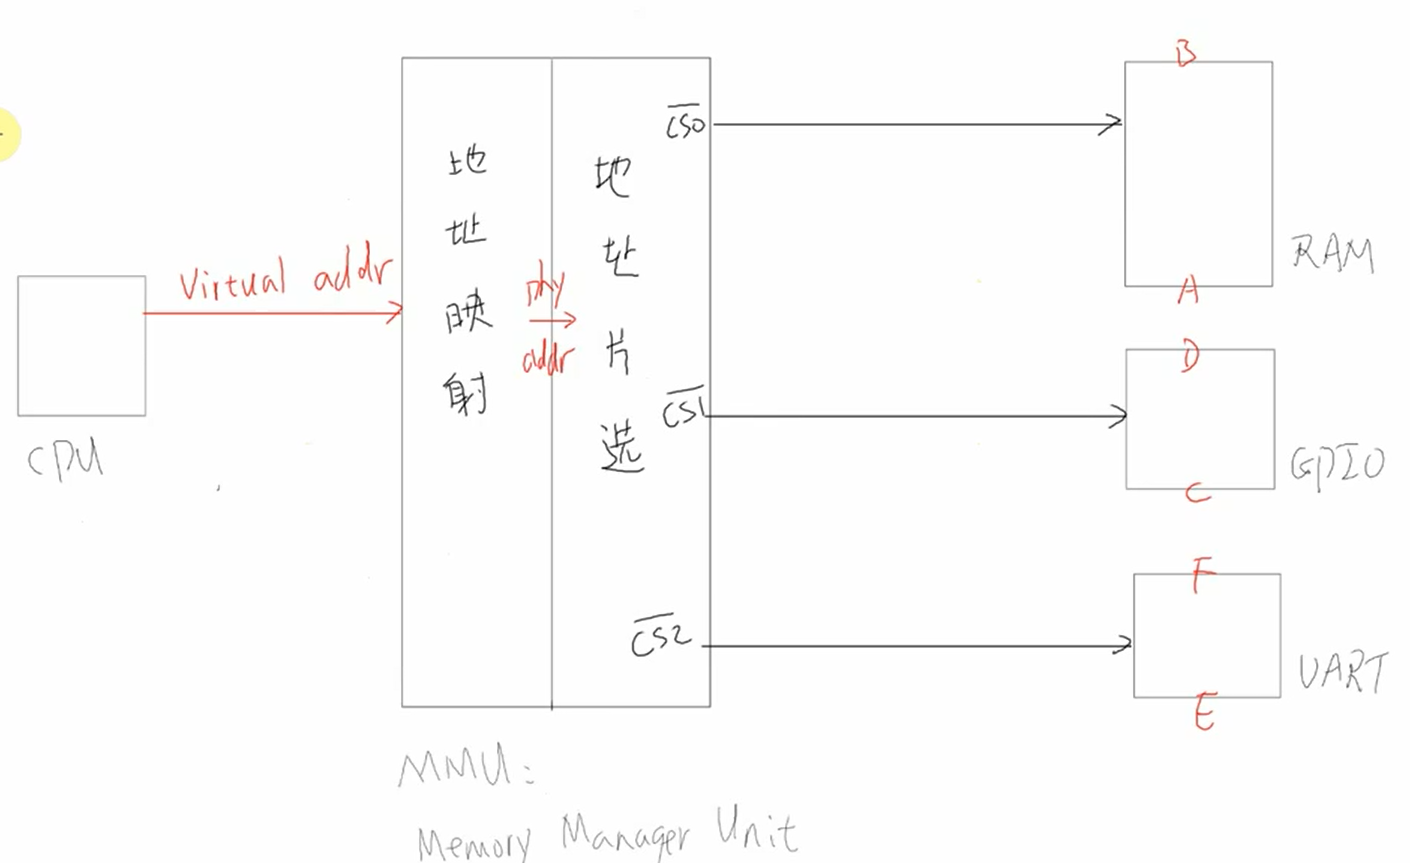 CPU
Virtual addr
地址映射
phy
addr
地址片选
C̅S̅0̅
C̅S̅1̅
C̅S̅2̅
B
RAM
A
D
GPIO
C
F
UART
E
MMU:
Memory Manager Unit